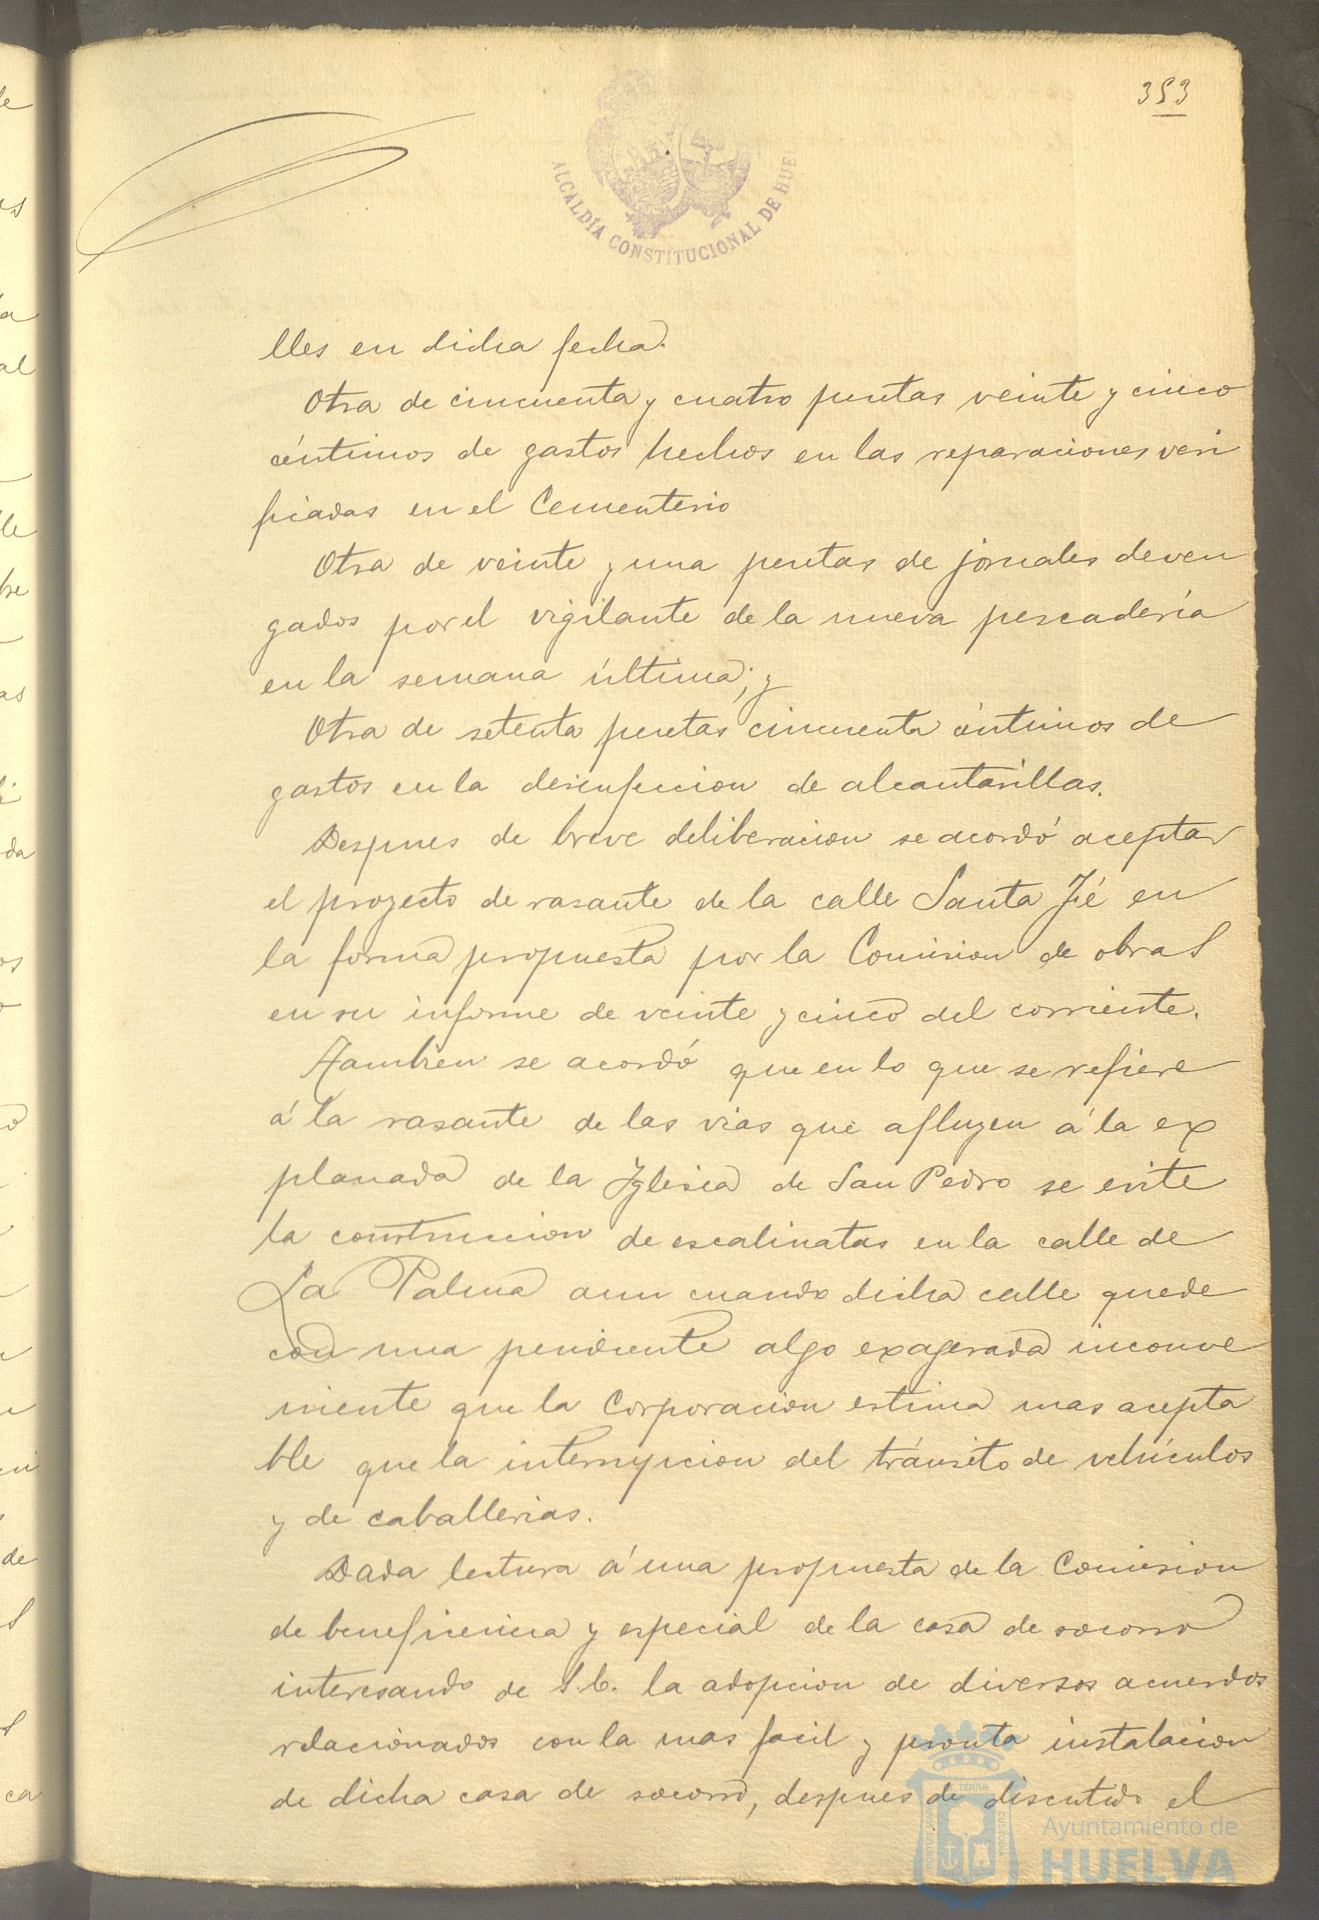 353
ALCALDÍA CONSTITUCIONAL DE HUE
lles en dicha fecha.
Otra de cincuenta y cuatro pesetas veinte y cinco
céntimos de gastos hechos en las reparaciones veri
ficadas en el Cementerio
Otra de veinte y una pesetas de jornales deven
gados por el vigilante de la nueva pescadería
en la semana última; y
Otra de setenta pesetas cincuenta céntimos de
gastos en la desinfeccion de alcantarillas.
Despues de breve deliberacion se acordó aceptar
el proyecto de rasante de la calle Santa Fé en
la forma propuesta por la Comision de obras
en su informe de veinte y cinco del corriente.
Tambien se acordó que en lo que se refiere
á la rasante de las vias que afluyen á la ex
planada de la Iglesia de San Pedro se evite
la construccion de escalinatas en la calle de
La Palma aun cuando dicha calle quede
con una pendiente algo exagerada inconve
niente que la Corporacion estima mas acepta
ble que la interrupcion del tránsito de vehículos
y de caballerias.
Dada lectura á una propuesta de la Comision
de beneficencia y especial de la casa de socorro
interesando de S.E. la adopcion de diversos acuerdos
relacionados con la mas facil y pronta instalacion
de dicha casa de socorro, despues de discutido el
Ayuntamiento de
HUELVA